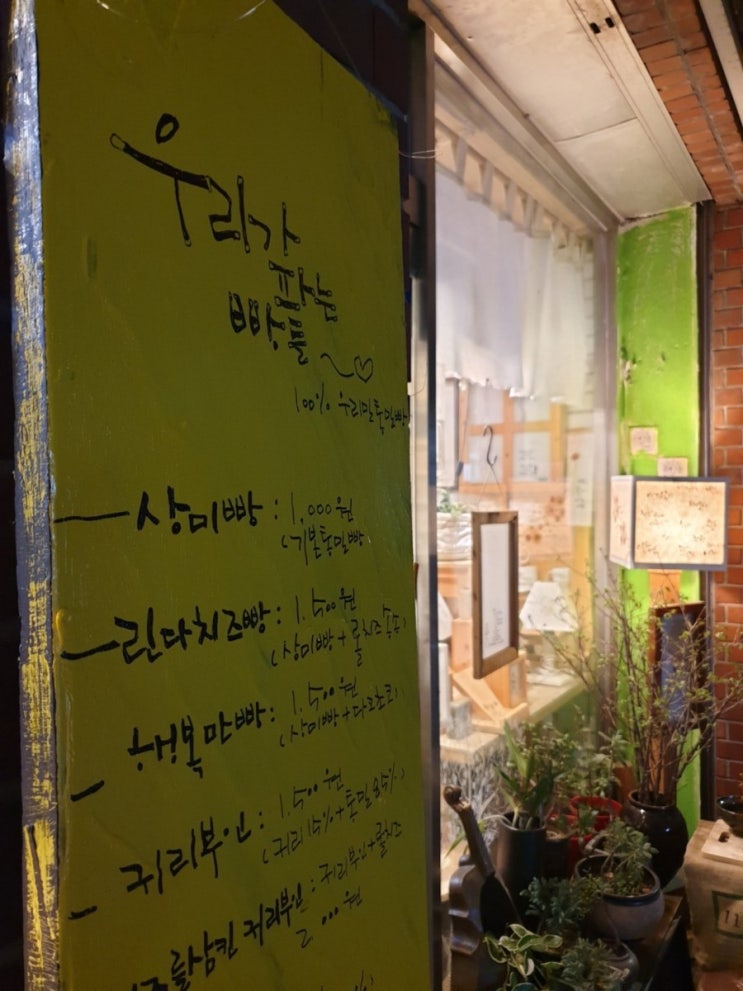 우리가
파는
빵들
100% 우리밀통밀빵
상미빵 : 1,000원
(기본통밀빵
린다치즈빵 : 1.500원
(상미빵 + 롤치즈송송)
행복만빵 : 1.500원
(상미빵 + 다크초코)
귀리부인 : 1.500원
(귀리15% + 통밀85%)
즈를삼킨 귀리부인 : 귀리부인+롤치즈
2.000원